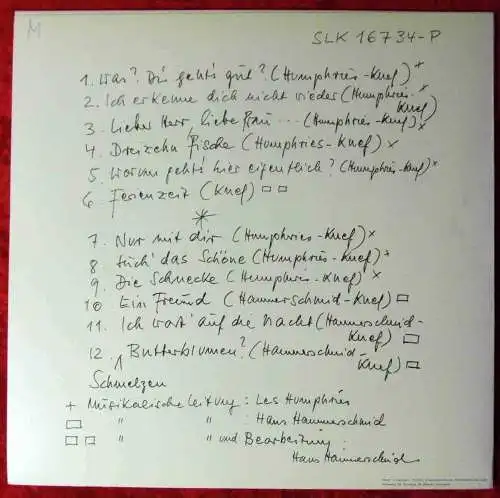 M
SLK 16734-P
1. Was? Dir geht's gut? (Humphries-Knef) +
2. Ich erkenne dich nicht wieder (Humphries-
Knef)
3. Lieber Herr, liebe Frau ... (Humphries-Knef) x
4. Dreizehn Fische (Humphries-Knef) x
5. Worum geht's hier eigentlich? (Humphries-Knef) x
6 Ferienzeit (Knef) □ □
*
7. Nur mit dir (Humphries-Knef) x
8 Such' das Schöne (Humphries-Knef) +
9. Die Schnecke (Humphries-Knef) x
10 Ein Freund (Hammerschmid-Knef) □
11. Ich wart' auf die Nacht (Hammerschmid-
Knef) □
12. Butterblumen? (Hammerschmid-
Knef) □
Schmelzen
+ Musikalische Leitung: Les Humphries
□ " " : Hans Hammerschmid
□ □ " " und Bearbeitung:
Hans Hammerschmid